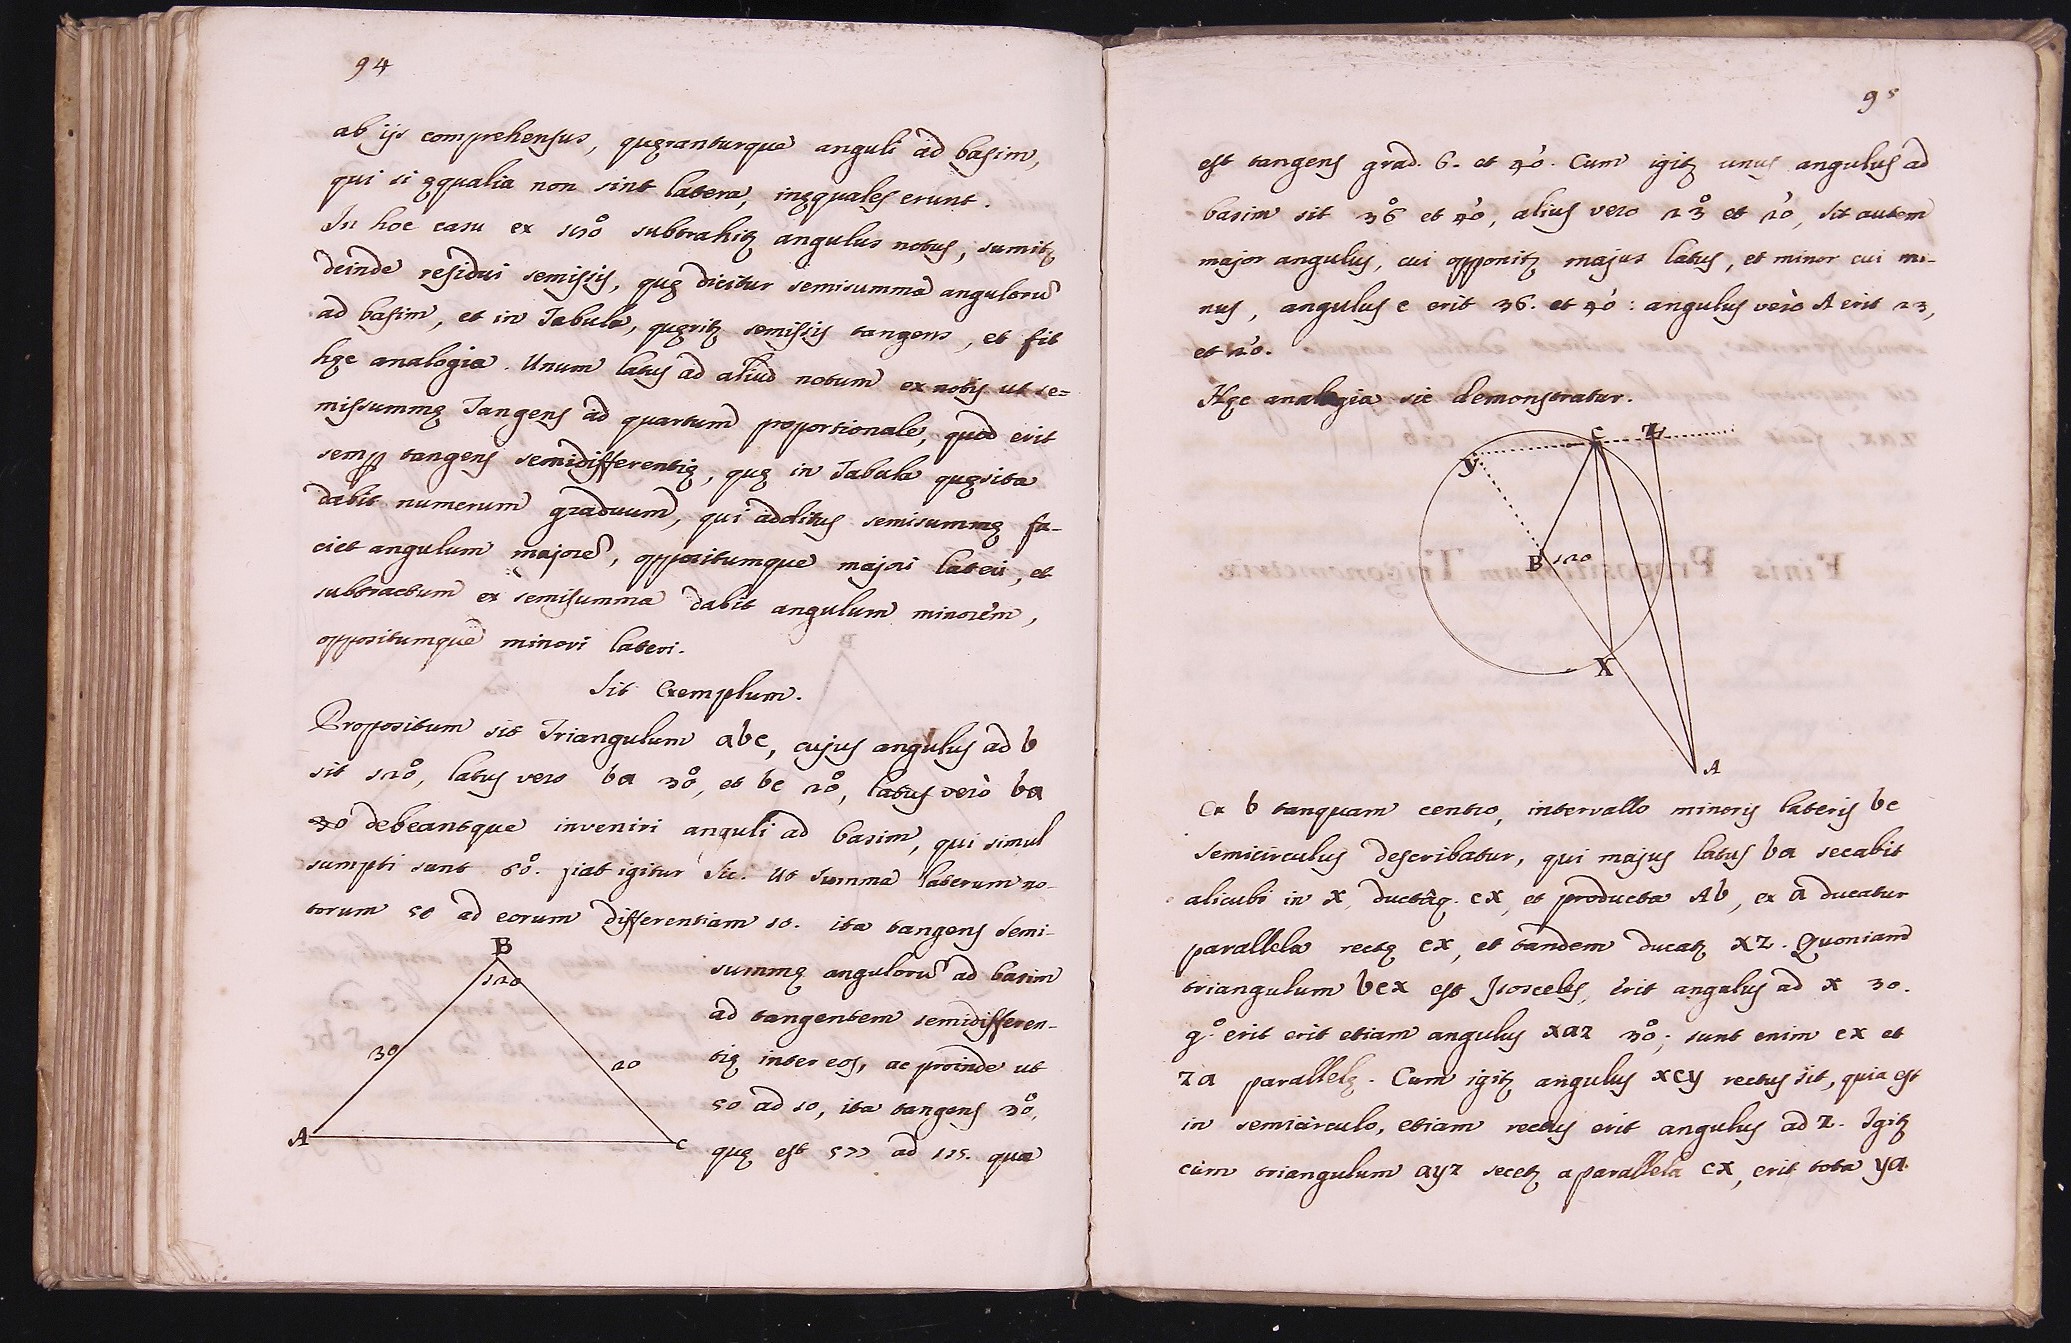 94
ab ijs comprehensus, quęranturque anguli ad basim,
qui si ęqualia non sint latera, inęquales erunt.
In hoc casu ex 180° subtrahitꝫ angulus notus, sumitꝫ
deinde residui semissis, quę dicitur semisumma angulorũ
ad basim, et in Tabula, quęritꝫ semissis tangens, et fit
hęc analogia. Unum latus ad aliud notum ex notis ut se=
missummę Tangens ad quartum proportionale, quod erit
semꝑ tangens semidifferentię, quę in Tabula quęsita
dabit numerum graduum, qui additus semisummę fa-
ciet angulum majorẽ, oppositumque majori lateri, et
subtractum ex semisumma dabit angulum minorem,
oppositumque minori lateri.
Sit Exemplum.
Propositum sit Triangulum abc, cujus angulus ad b
sit 120°, latus vero ba 30°, et bc 20°, latus verò ba
30 debeantque inveniri anguli ad basim, qui simul
sumpti sunt 60°. fiat igitur sic. Ut summa laterum no-
torum 50 ad eorum differentiam 10. ita tangens semi-
B
120
30
20
A
C
summę angulorũ ad basim
ad tangentem semidifferen-
tię inter eos, ac proinde ut
50 ad 10, ita tangens 30°,
quę est 577 ad 115. qua
95
est tangens grad. 6. et 40'. Cum igitꝫ unus angulus ad
basim sit 36° et 40', alius vero 23° et 20', sit autem
major angulus, cui opponitꝫ majus latus, et minor cui mi-
nus, angulus c erit 36. et 40': angulus verò A erit 23,
et 20'.
Hęc analogia sic demonstratur.
C
Z
y
B
120
X
A
Ex b tanquam centro, intervallo minoris lateris bc
semicirculus describatur, qui majus latus ba secabit
alicubi in x, ductâq. cx, et producta Ab, ex a ducatur
parallela rectę cx, et tandem ducatꝫ xz. Quoniam
triangulum bcx est Isosceles, erit angulus ad x 30.
g.° erit erit etiam angulus xaz 30°; sunt enim cx et
za parallelę. Cum igitꝫ angulus xcy rectus sit, quia est
in semicirculo, etiam rectus erit angulus ad z. Igitꝫ
cùm triangulum ayz secetꝫ a parallela cx, erit tota ya